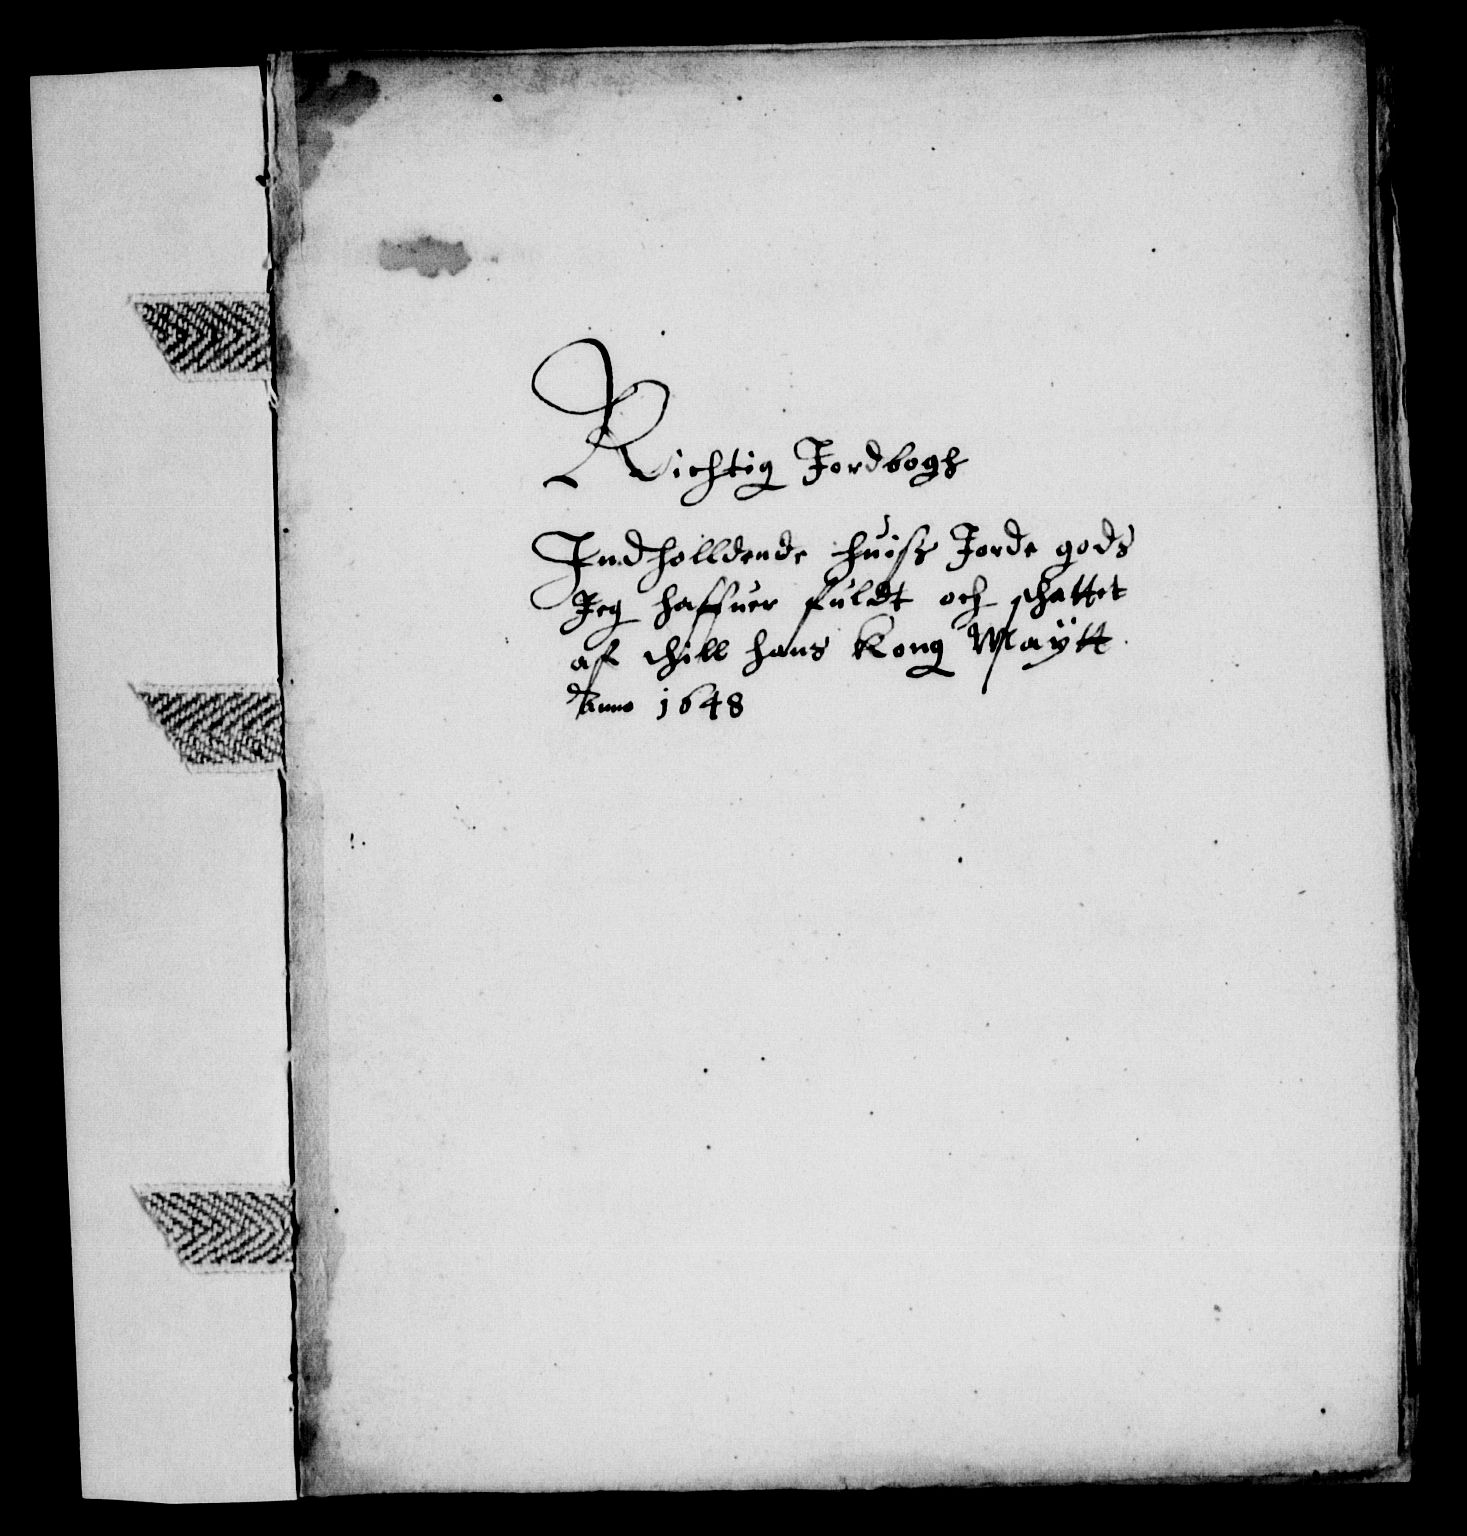 Richtig Jordbogh
Indholldende huisz Jorde gods
Jeg haffuer fuldt och schattet
af thill hans Kong Maÿtt
Anno 1648